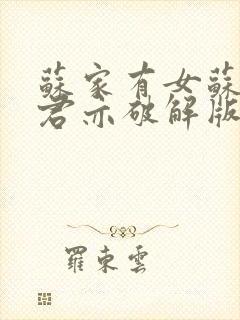 蘇家有女蘇
君亦破解版
羅東雲